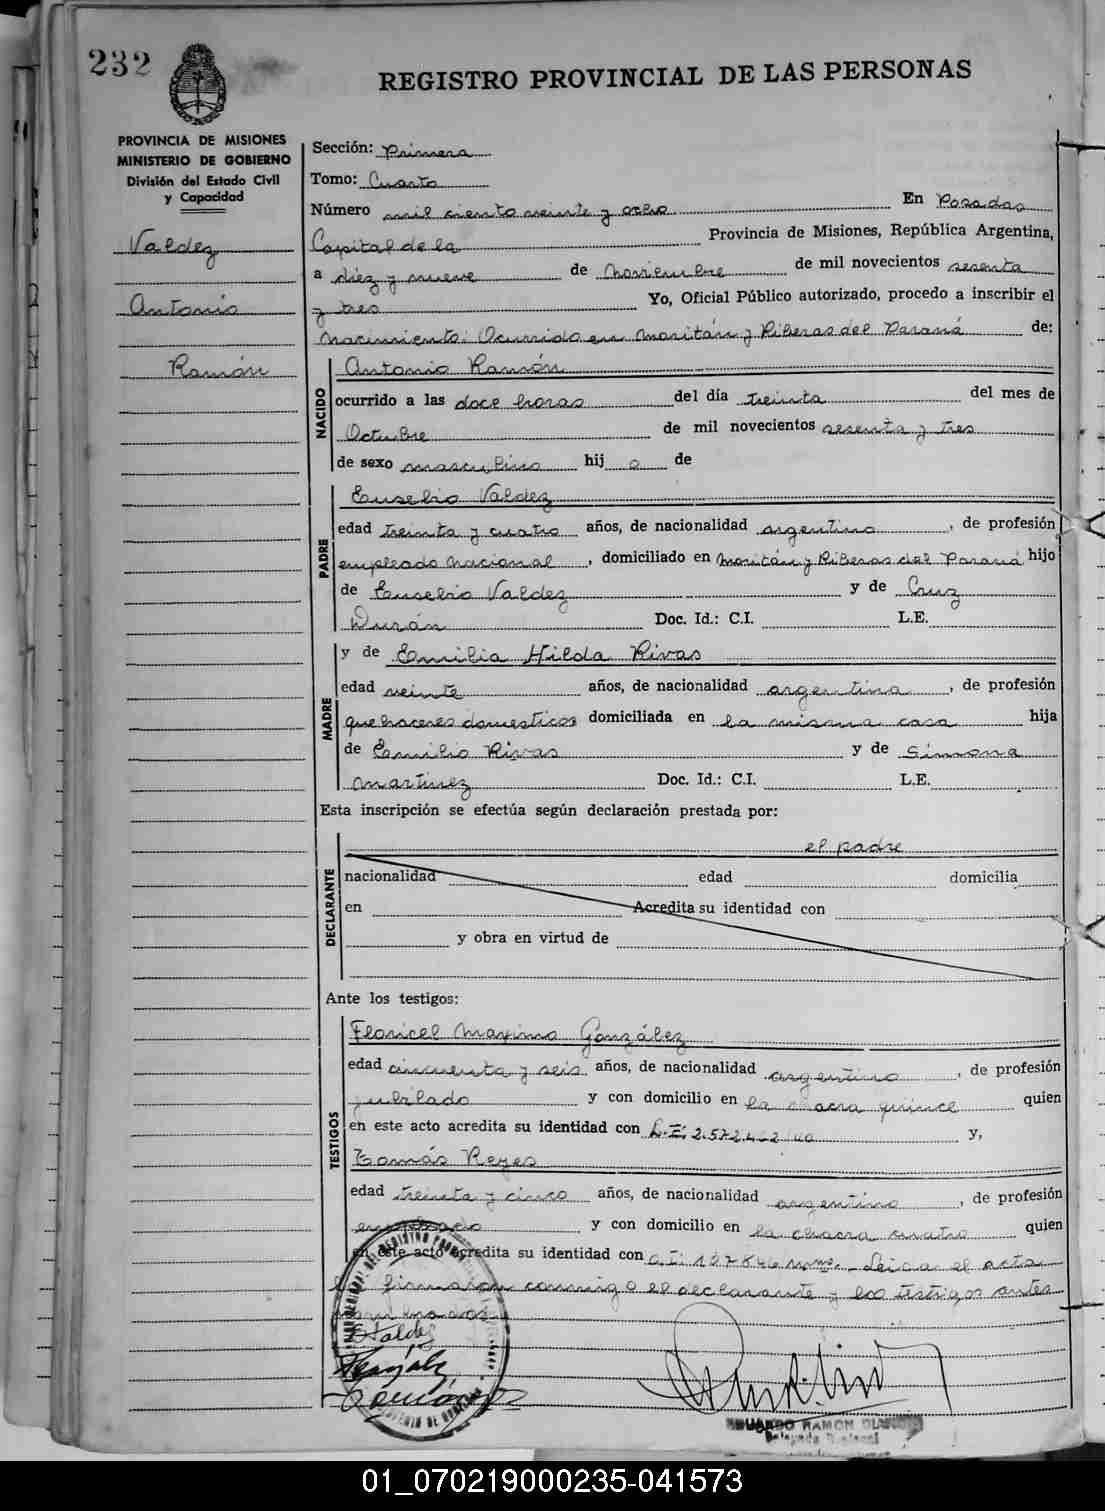 232
REGISTRO PROVINCIAL DE LAS PERSONAS
PROVINCIA DE MISIONES
MINISTERIO DE GOBIERNO
División del Estado Civil
y Capacidad
Valdez
Antonio
Ramón
Sección: Primera
Tomo: Cuarto
Número mil ciento veinte y ocho En Posadas
Capital de la Provincia de Misiones, República Argentina,
a diez y nueve de Noviembre de mil novecientos sesenta
y tres Yo, Oficial Público autorizado, procedo a inscribir el
Nacimiento: Ocurrido en Moritán y Riberas del Paraná de:
NACIDO
Antonio Ramón
ocurrido a las doce horas del día treinta del mes de
Octubre de mil novecientos sesenta y tres
de sexo masculino hij o de
PADRE
Eusebio Valdez
edad treinta y cuatro años, de nacionalidad argentino, de profesión
empleado nacional, domiciliado en Moritán y Riberas del Paraná hijo
de Eusebio Valdez y de Cruz
Durán Doc. Id.: C.I. L.E.
MADRE
y de Emilia Hilda Rivas
edad veinte años, de nacionalidad argentina, de profesión
quehaceres domesticos domiciliada en la misma casa hija
de Emilio Rivas y de Simona
Martinez Doc. Id.: C.I. L.E.
Esta inscripción se efectúa según declaración prestada por:
DECLARANTE
el padre
nacionalidad edad domicilia
en Acredita su identidad con
y obra en virtud de
Ante los testigos:
TESTIGOS
Floricel Maximo González
edad cincuenta y seis años, de nacionalidad argentino, de profesión
jubilado y con domicilio en la chacra quince quien
en este acto acredita su identidad con L.E. 2.572.462 y,
Tomás Reyes
edad treinta y cinco años, de nacionalidad argentino, de profesión
empleado y con domicilio en la chacra cuatro quien
en este acto acredita su identidad con Leida el acta
la firmaron conmigo el declarante y los testigos antes
EDUARDO RAMON
01_070219000235-041573